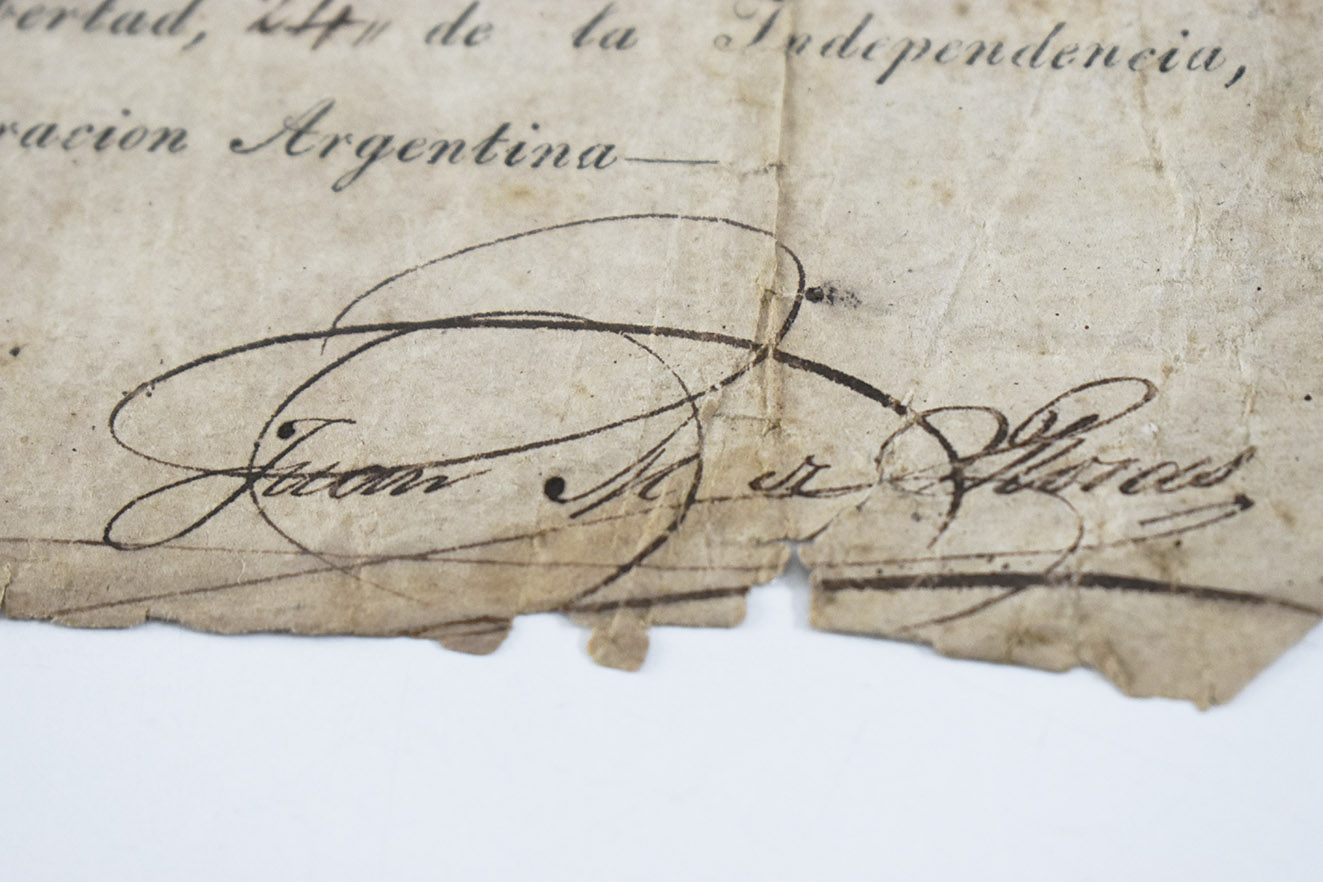 ertad, 24 de la Independencia,
racion Argentina—
Juan M. de Rosas